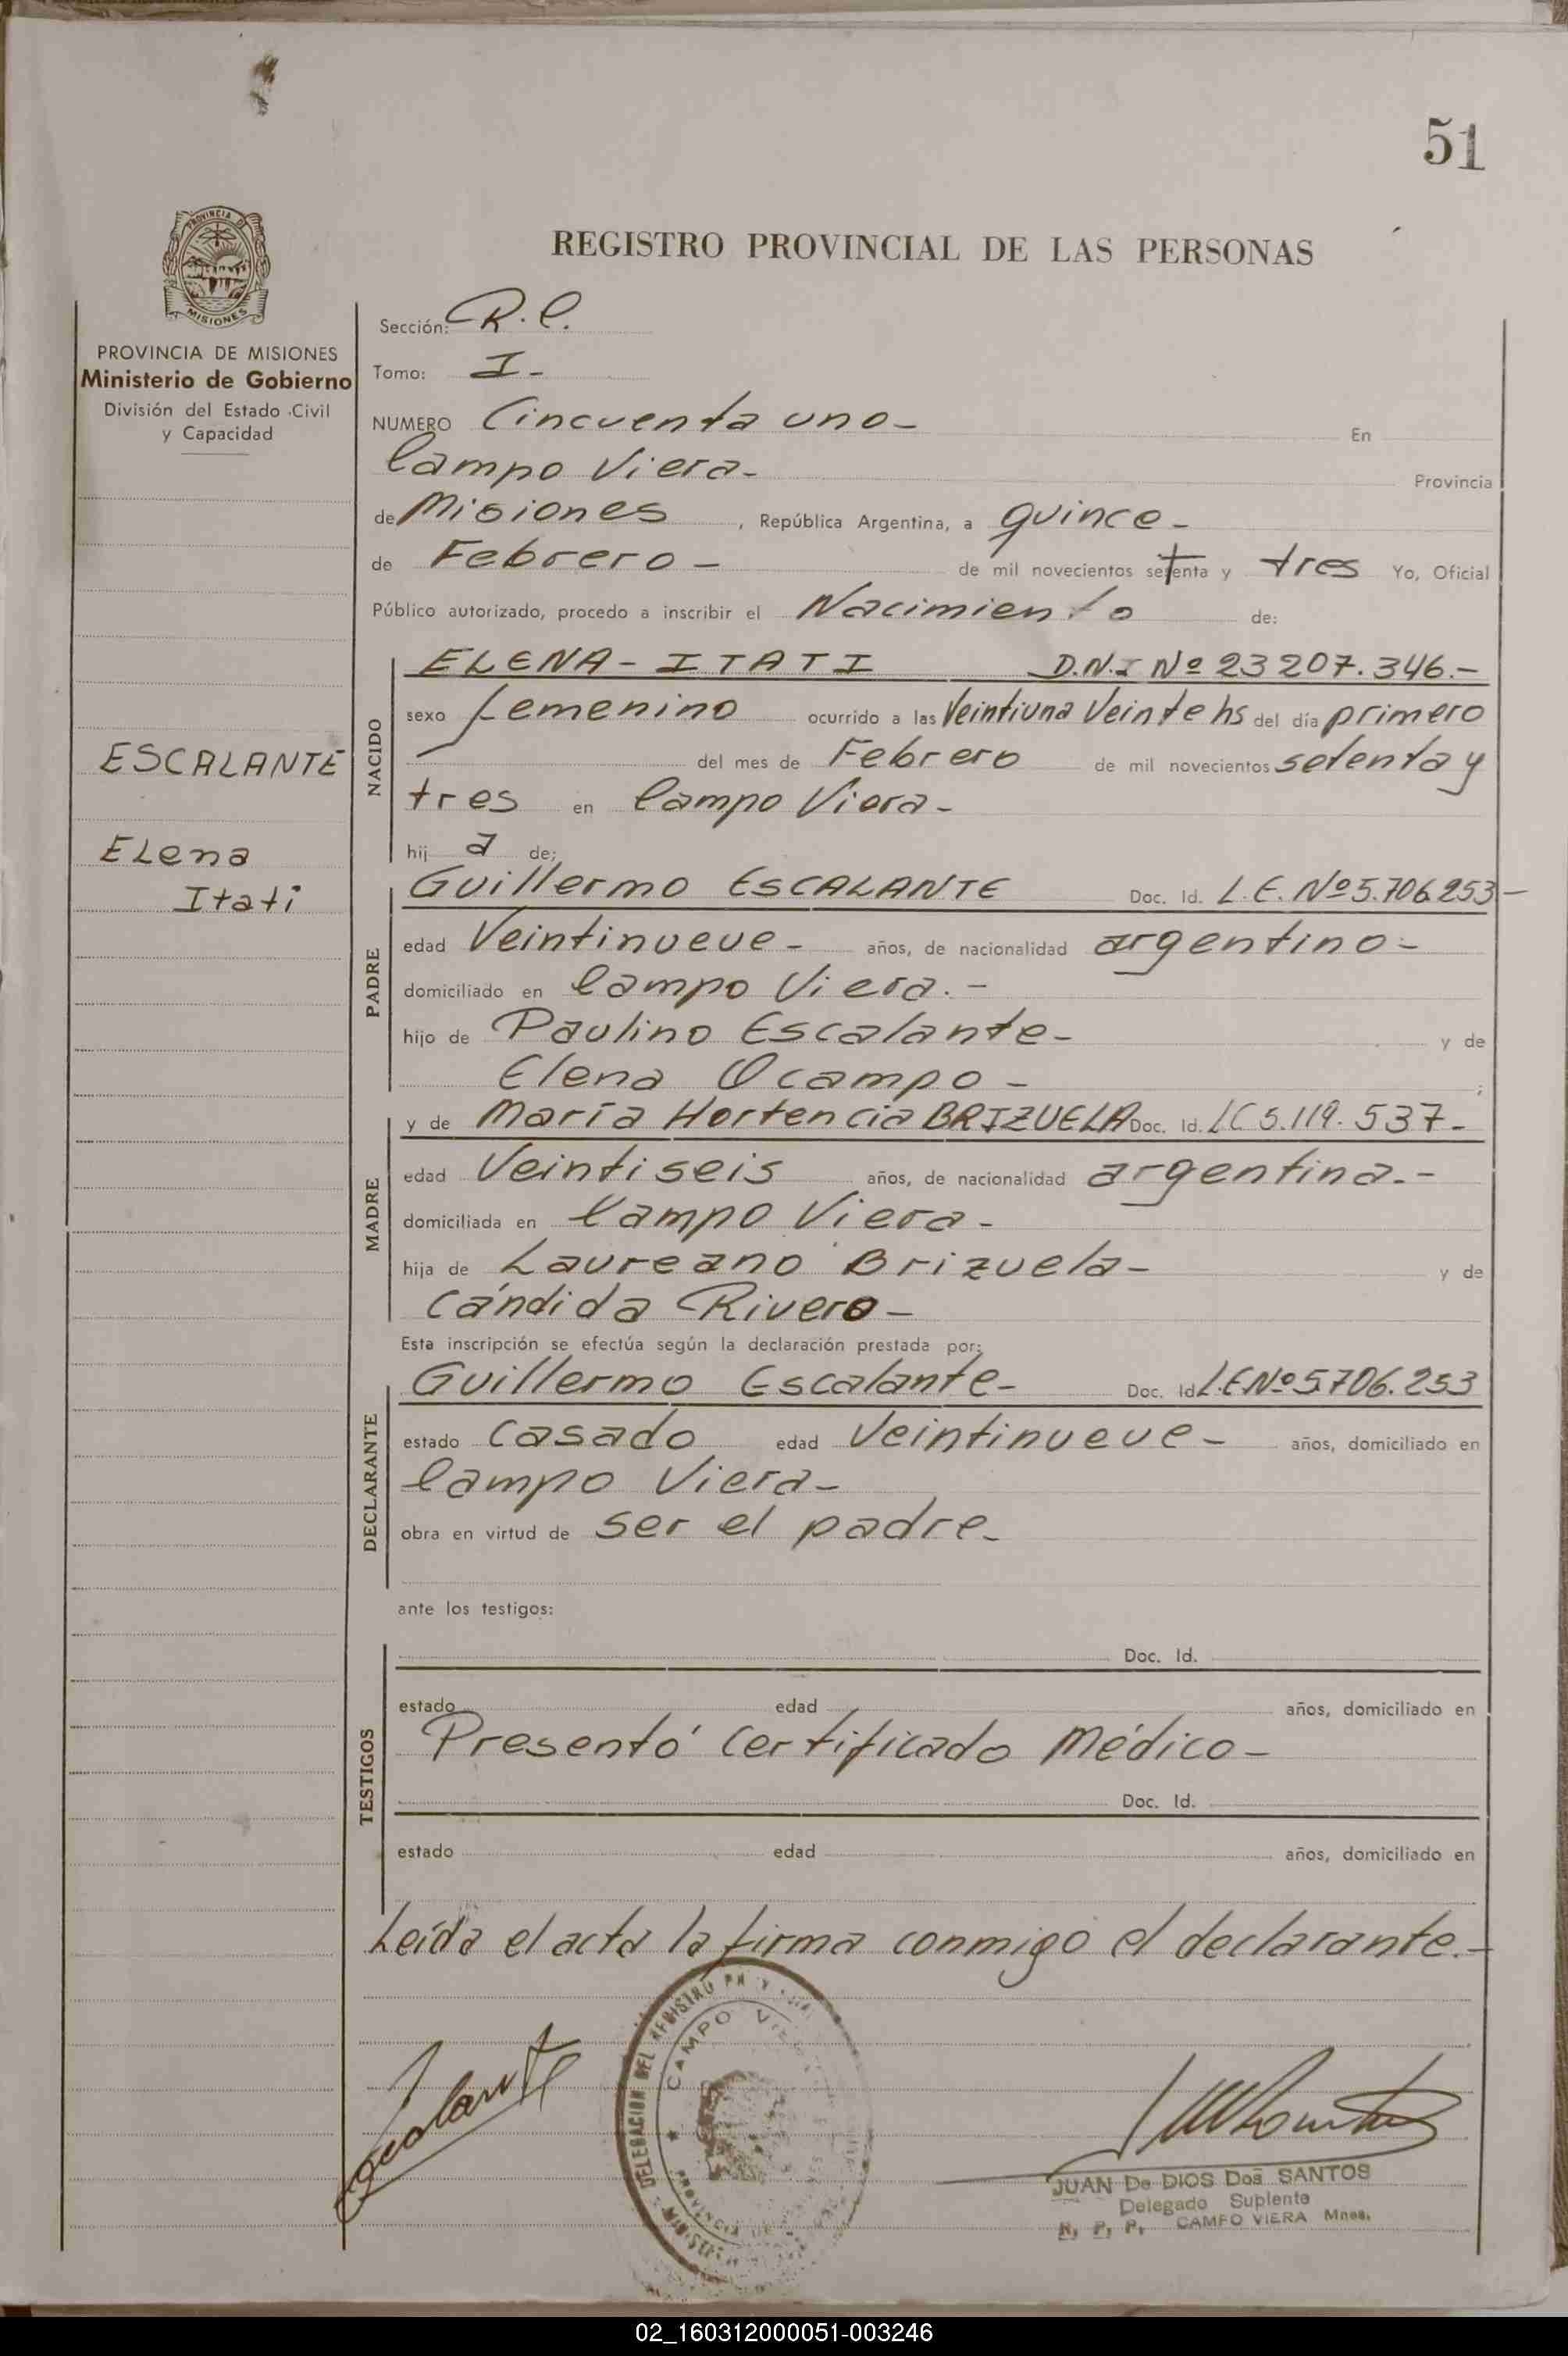 51
PROVINCIA DE
MISIONES
PROVINCIA DE MISIONES
Ministerio de Gobierno
División del Estado Civil
y Capacidad
ESCALANTE
Elena
Itati
REGISTRO PROVINCIAL DE LAS PERSONAS
Sección: R.C.
Tomo: I -
NUMERO Cincuenta uno - En
Campo Viera - Provincia
de Misiones, República Argentina, a quince -
de Febrero - de mil novecientos setenta y tres Yo, Oficial
Público autorizado, procedo a inscribir el Nacimiento de:
NACIDO
ELENA - ITATI D.N.I Nº 23 207.346.-
sexo femenino ocurrido a las Veintiuna Veinte hs del día primero
del mes de Febrero de mil novecientos setenta y
tres en Campo Viera -
hij a de;
PADRE
Guillermo ESCALANTE Doc. Id. L.E. Nº 5.706.253 -
edad Veintinueve - años, de nacionalidad argentino -
domiciliado en Campo Viera. -
hijo de Paulino Escalante - y de
Elena Ocampo - ;
MADRE
y de María Hortencia BRIZUELA Doc. Id. LC 5.119.537 -
edad Veintiseis años, de nacionalidad argentina. -
domiciliada en Campo Viera -
hija de Laureano Brizuela - y de
Cándida Rivero -
Esta inscripción se efectúa según la declaración prestada por:
DECLARANTE
Guillermo Escalante - Doc. Id L.E Nº 5.706.253
estado Casado edad Veintinueve - años, domiciliado en
Campo Viera -
obra en virtud de ser el padre -
ante los testigos:
TESTIGOS
Doc. Id.
estado edad años, domiciliado en
Presentó Certificado Médico -
Doc. Id.
estado edad años, domiciliado en
Leída el acta la firma conmigo el declarante. -
Escalante
DELEGACION DEL REGISTRO
CAMPO
PROVINCIA DE
JUAN De DIOS Dos SANTOS
Delegado Suplente
R. P. P. CAMPO VIERA Mnes.
02_160312000051-003246